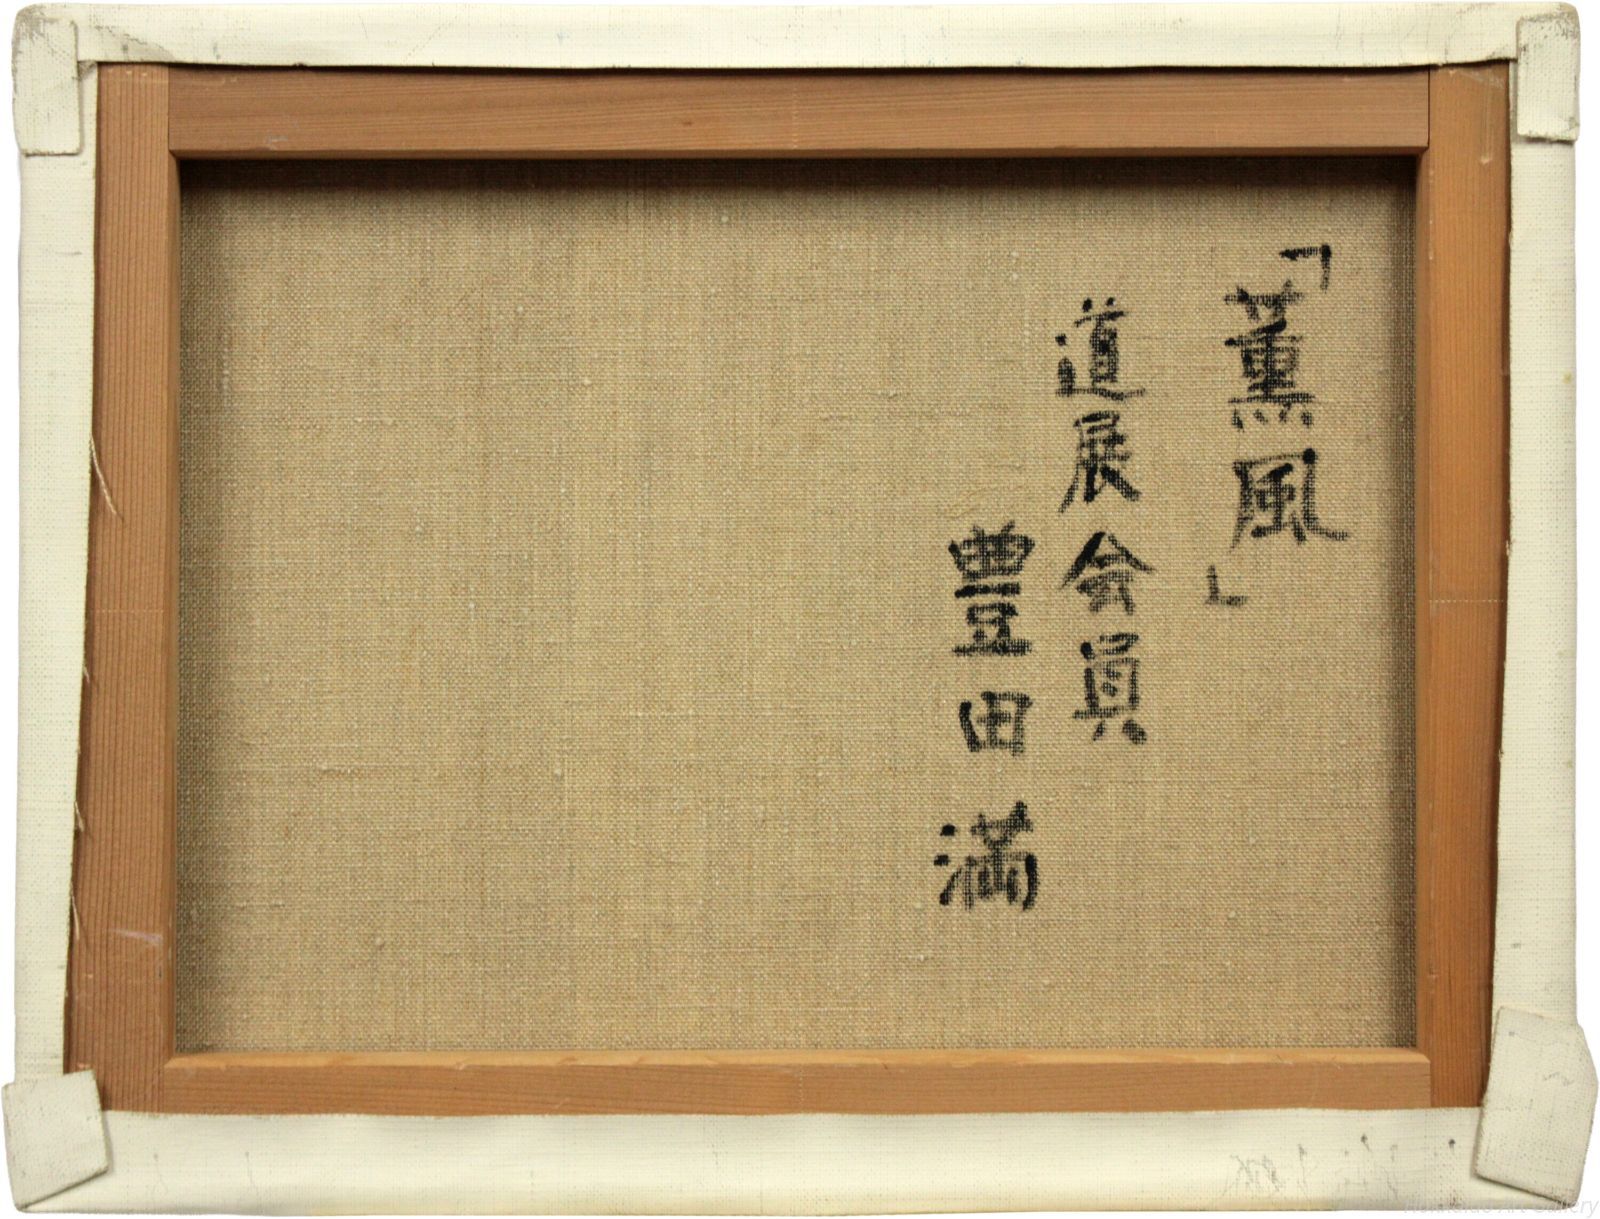 「薫風」
道展会員
豊田満
Hokkaido Art Gallery